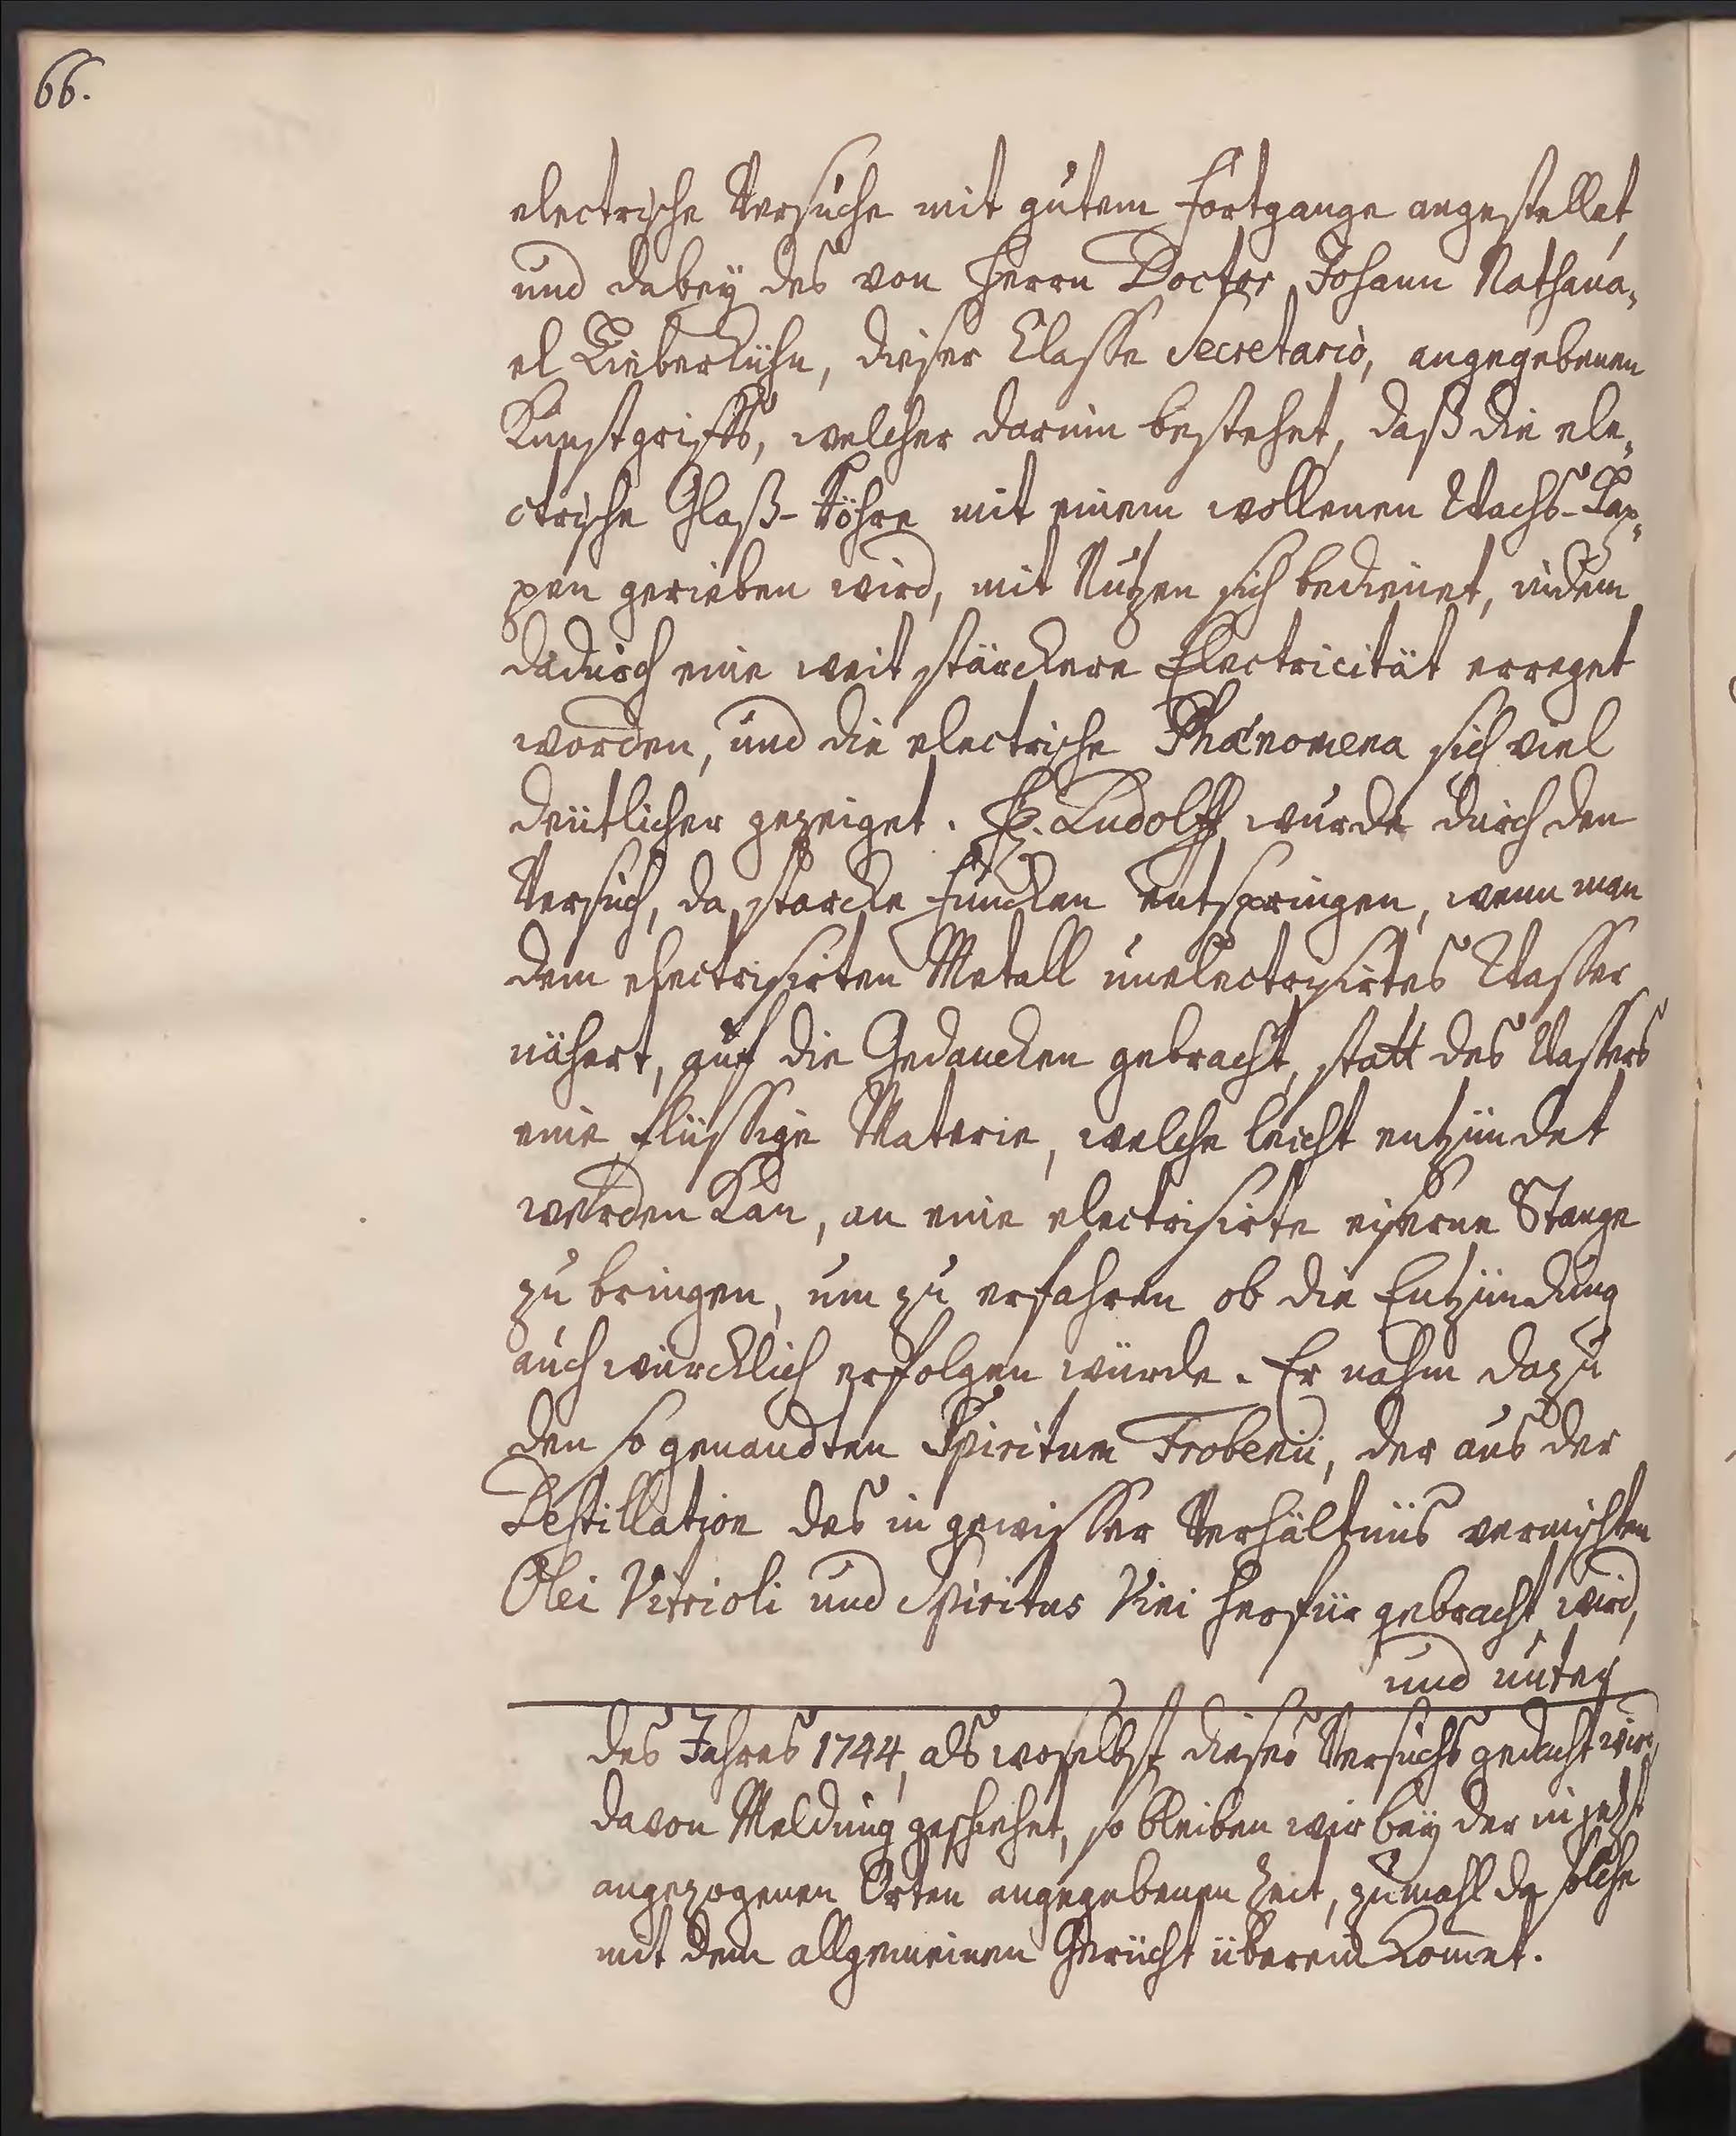 66.
electrische Versuche mit gutem Fortgange angestellet,
und dabey des von Herrn Doctor Johann Nathana-
el Lieberkühn, dieser Classe Secretario, angegebenen
Kunstgriffs, welcher darinn bestehet, daß die ele-
ctrische Glaß-Röhre mit einem wollenen Wachs-Lap-
pen gerieben wird, mit Nutzen sich bedienet, indem
dadurch eine weit stärckere Electricität erreget
worden, und die electrische Phænomena sich viel
deutlicher gezeiget. H. Ludolff wurde durch den
Versuch, da starcke Funcken entspringen, wenn man
dem electrisirten Metall unelectrisirtes Wasser
nähert, auf die Gedancken gebracht, statt des Wassers
eine flüssige Materie, welche leicht entzündet
werden kan, an eine electrisirte eiserne Stange
zu bringen, um zu erfahren ob die Entzündung
auch würcklich erfolgen würde. Er nahm dazu
den so genandten Spiritum Frobenii, der aus der
Destillation des in gewisser Verhältniis vermischten
Olei Vitrioli und Spiritus Vini herfür gebracht wird,
und unter
des Jahres 1744, als woselbst dieses Versuchs gedacht wird,
davon Meldung geschiehet, so bleiben wir bey der in jetzt
angezogenen Orten angegebenen Zeit, zumahl da solche
mit dem allgemeinen Gerücht überein kommet.